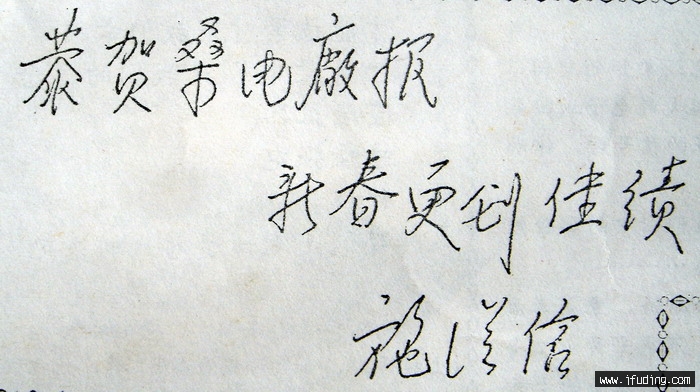 恭贺桑电廠报
新春更创佳绩
施洪信
www.ifuding.com